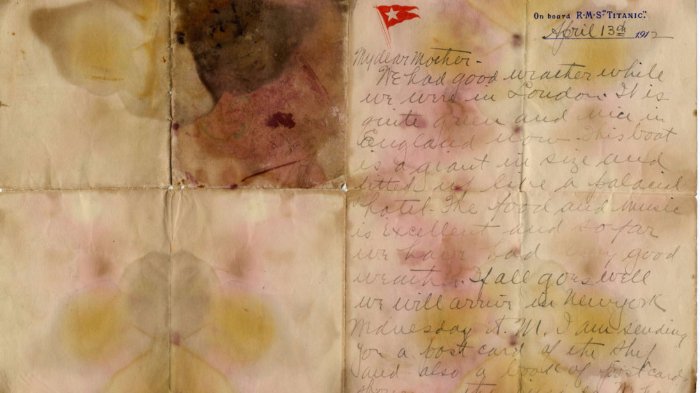 On board R·M·S "TITANIC."
April 13th 1912
My dear Mother-
We had good weather while
we were in London. It is
quite green and nice in
England now. This boat
is a giant in size and
fitted up like a palacial
hotel. The food and music
is excellent and so far
we have had good
weather. If all goes well
we will arrive in New York
Wednesday A. M. I am sending
you a post card of the ship
and also a book of postcards
the